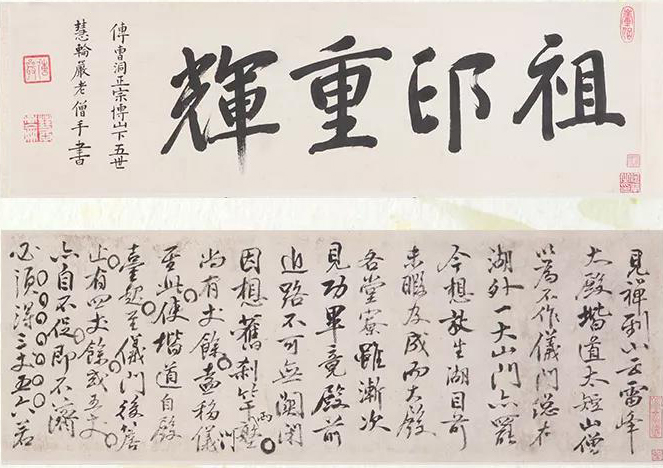 祖印重輝
傳曹洞正宗博山下五世
慧輪嚴老僧手書
見禪到小云雷峰
大殿堦道太短山僧
以爲不作儀門總在
湖外一大山門亦罷
今想放生湖目前
未暇及成而大殿
各堂寮雖漸次
見功畢竟殿前
迫路不可無闌閑
因想舊刹竿歷
尚有丈餘盍移儀門
至此使堦道自殿
臺起至儀門後簷
止有四丈餘或五丈
亦自不促即不濟
必須得三丈五六若